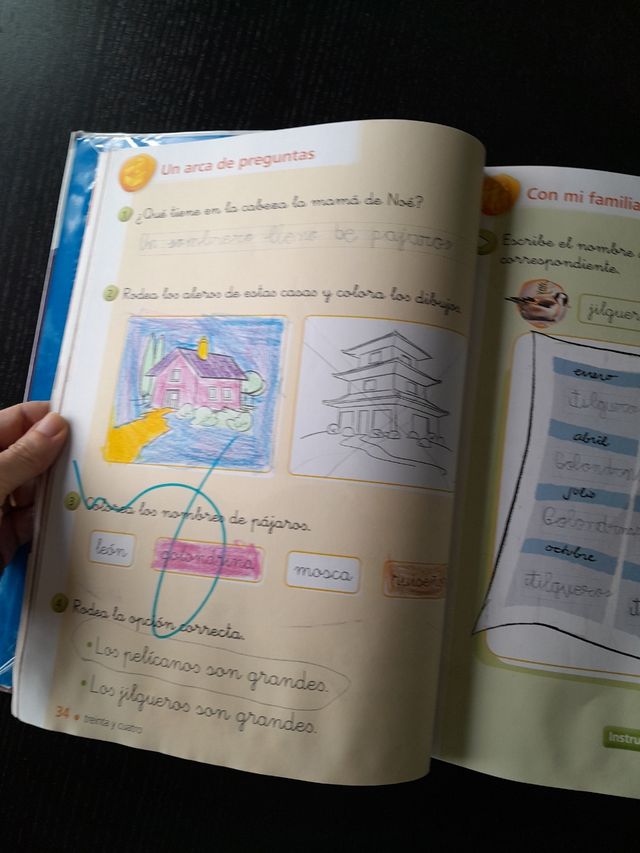 Un arca de preguntas
1 ¿Qué tiene en la cabeza la mamá de Noé?
Un sombrero lleno be pajaros
2 Rodea los aleros de estas casas y colorea los dibujos.
3 Colorea los nombres de pájaros.
león golondrina mosca
4 Rodea la opción correcta.
• Los pelícanos son grandes.
• Los jilgueros son grandes.
34 • treinta y cuatro
Con mi familia
Escribe el nombre
correspondiente.
enero
Jilgueros
abril
julio
octubre
Jilgueros